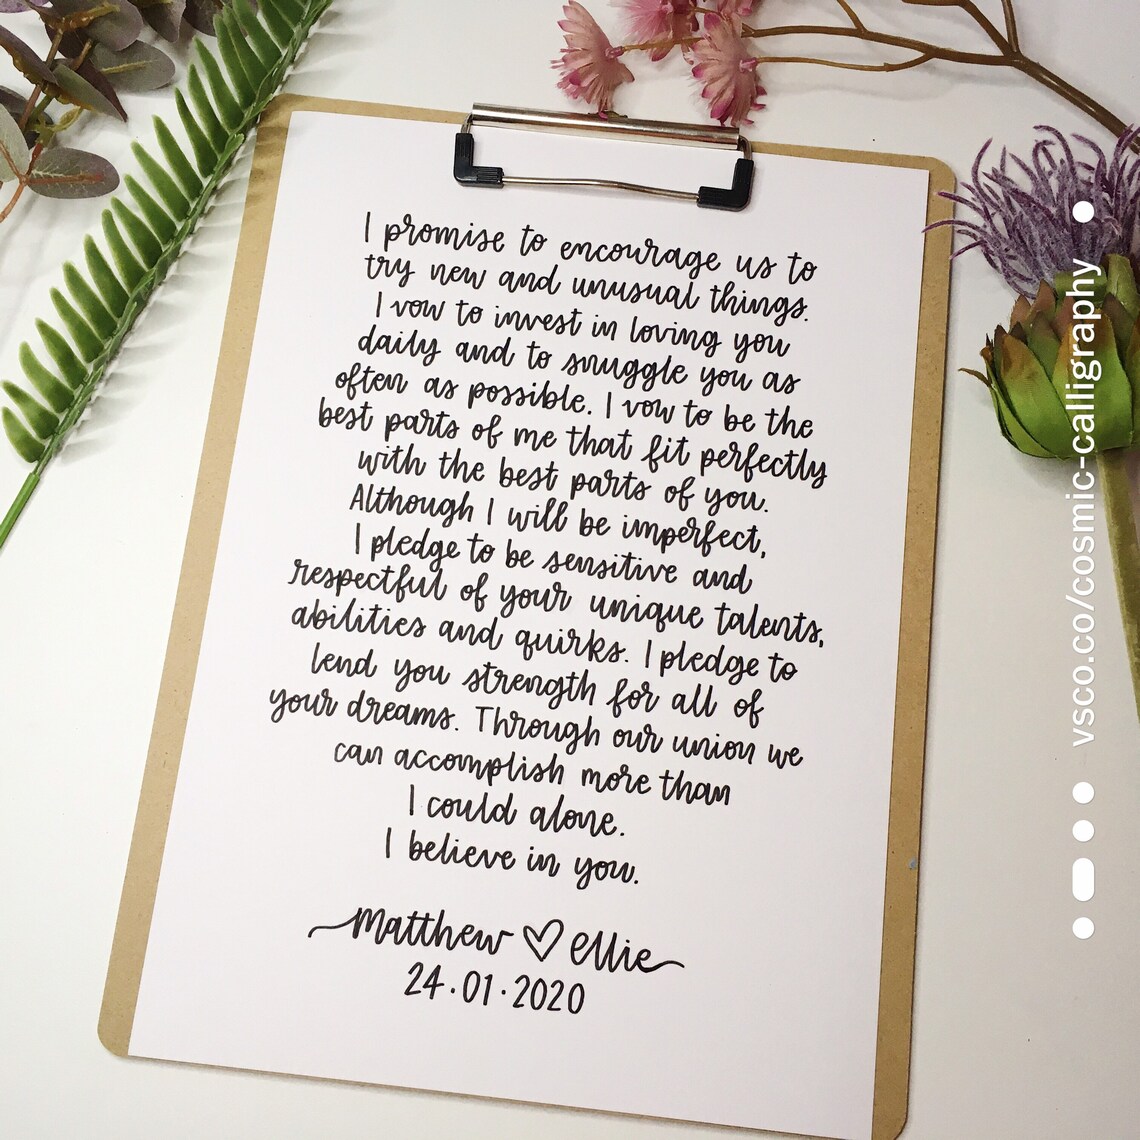 I promise to encourage us to
try new and unusual things.
I vow to invest in loving you
daily and to snuggle you as
often as possible. I vow to be the
best parts of me that fit perfectly
with the best parts of you.
Although I will be imperfect,
I pledge to be sensitive and
respectful of your unique talents,
abilities and quirks. I pledge to
lend you strength for all of
your dreams. Through our union we
can accomplish more than
I could alone.
I believe in you.
Matthew ♡ Ellie
24.01.2020
vsco.co/cosmic-calligraphy